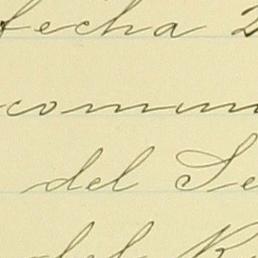 fecha 2
comun
del Se
del R